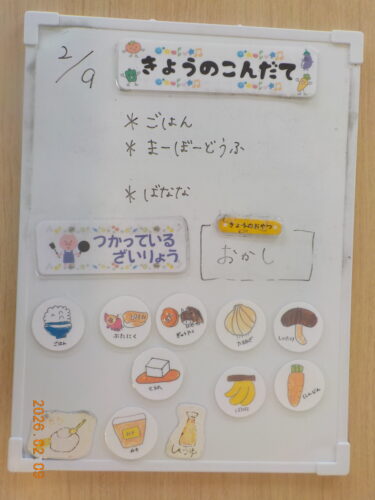 2/9
きょうのこんだて
* ごはん
* まーぼーどうふ
* ばなな
つかっている
ざいりょう
きょうのおやつ
おかし
ごはん
ぶたにく
ぎゅうにく
たまねぎ
しいたけ
とうふ
ばなな
にんじん
みそ
しょうゆ
2026.02.09